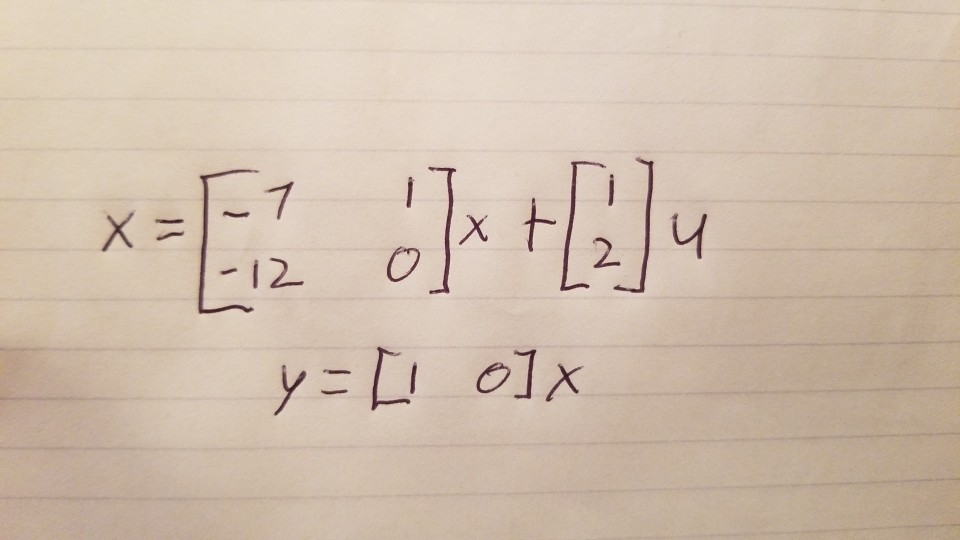 x = [-7 1; -12 0] x + [1; 2] u
y = [1 0] x